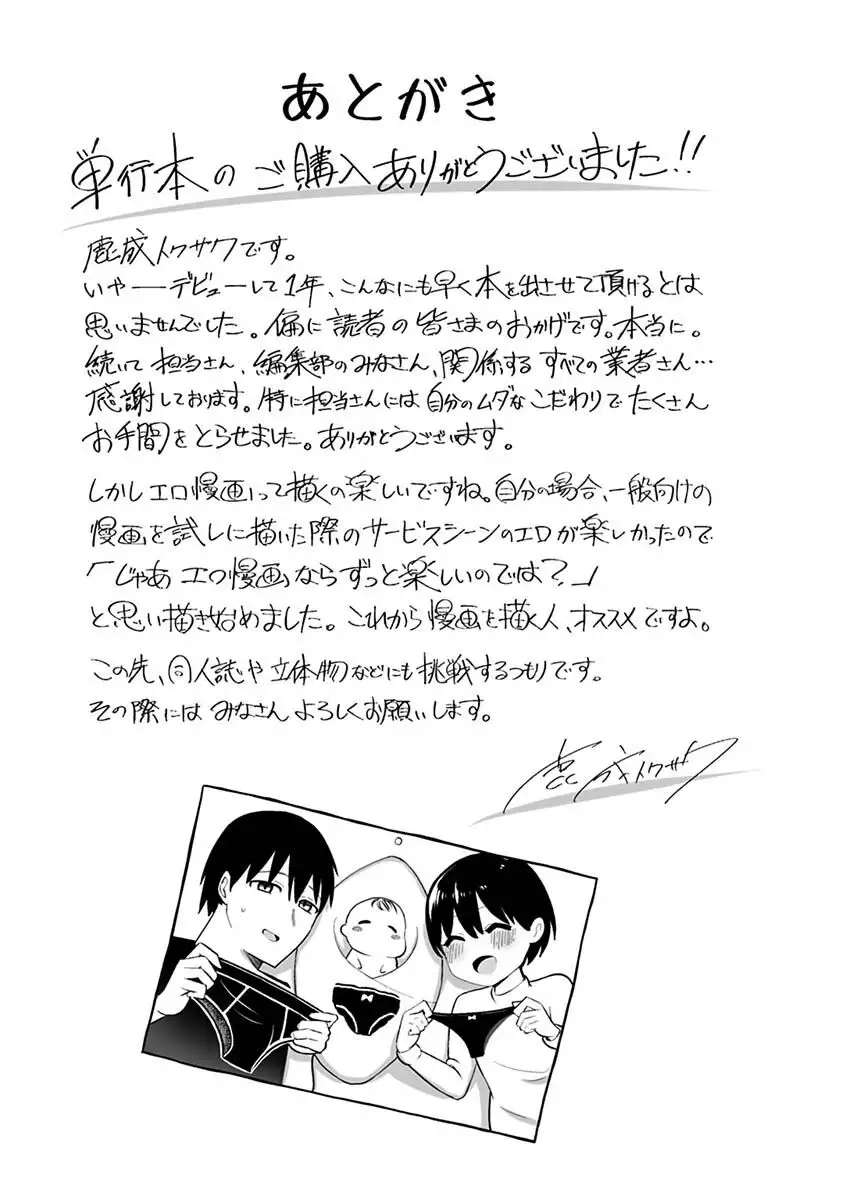 あとがき
単行本のご購入ありがとうございました!!
鹿成トクサクです。
いやーデビューして1年、こんなにも早く本を出させて頂けるとは
思いませんでした。偏に読者の皆さまのおかげです。本当に。
続いて担当さん、編集部のみなさん、関係するすべての業者さん…
感謝しております。特に担当さんには自分のムダなこだわりでたくさん
お手間をとらせました。ありがとうございます。
しかしエロ漫画って描くの楽しいですね。自分の場合、一般向けの
漫画を試しに描いた際のサービスシーンのエロが楽しかったので
「じゃあエロ漫画ならずっと楽しいのでは?」
と思い描き始めました。これから漫画を描く人、オススメですよ。
この先、同人誌や立体物などにも挑戦するつもりです。
その際にはみなさんよろしくお願いします。
鹿成トクサク